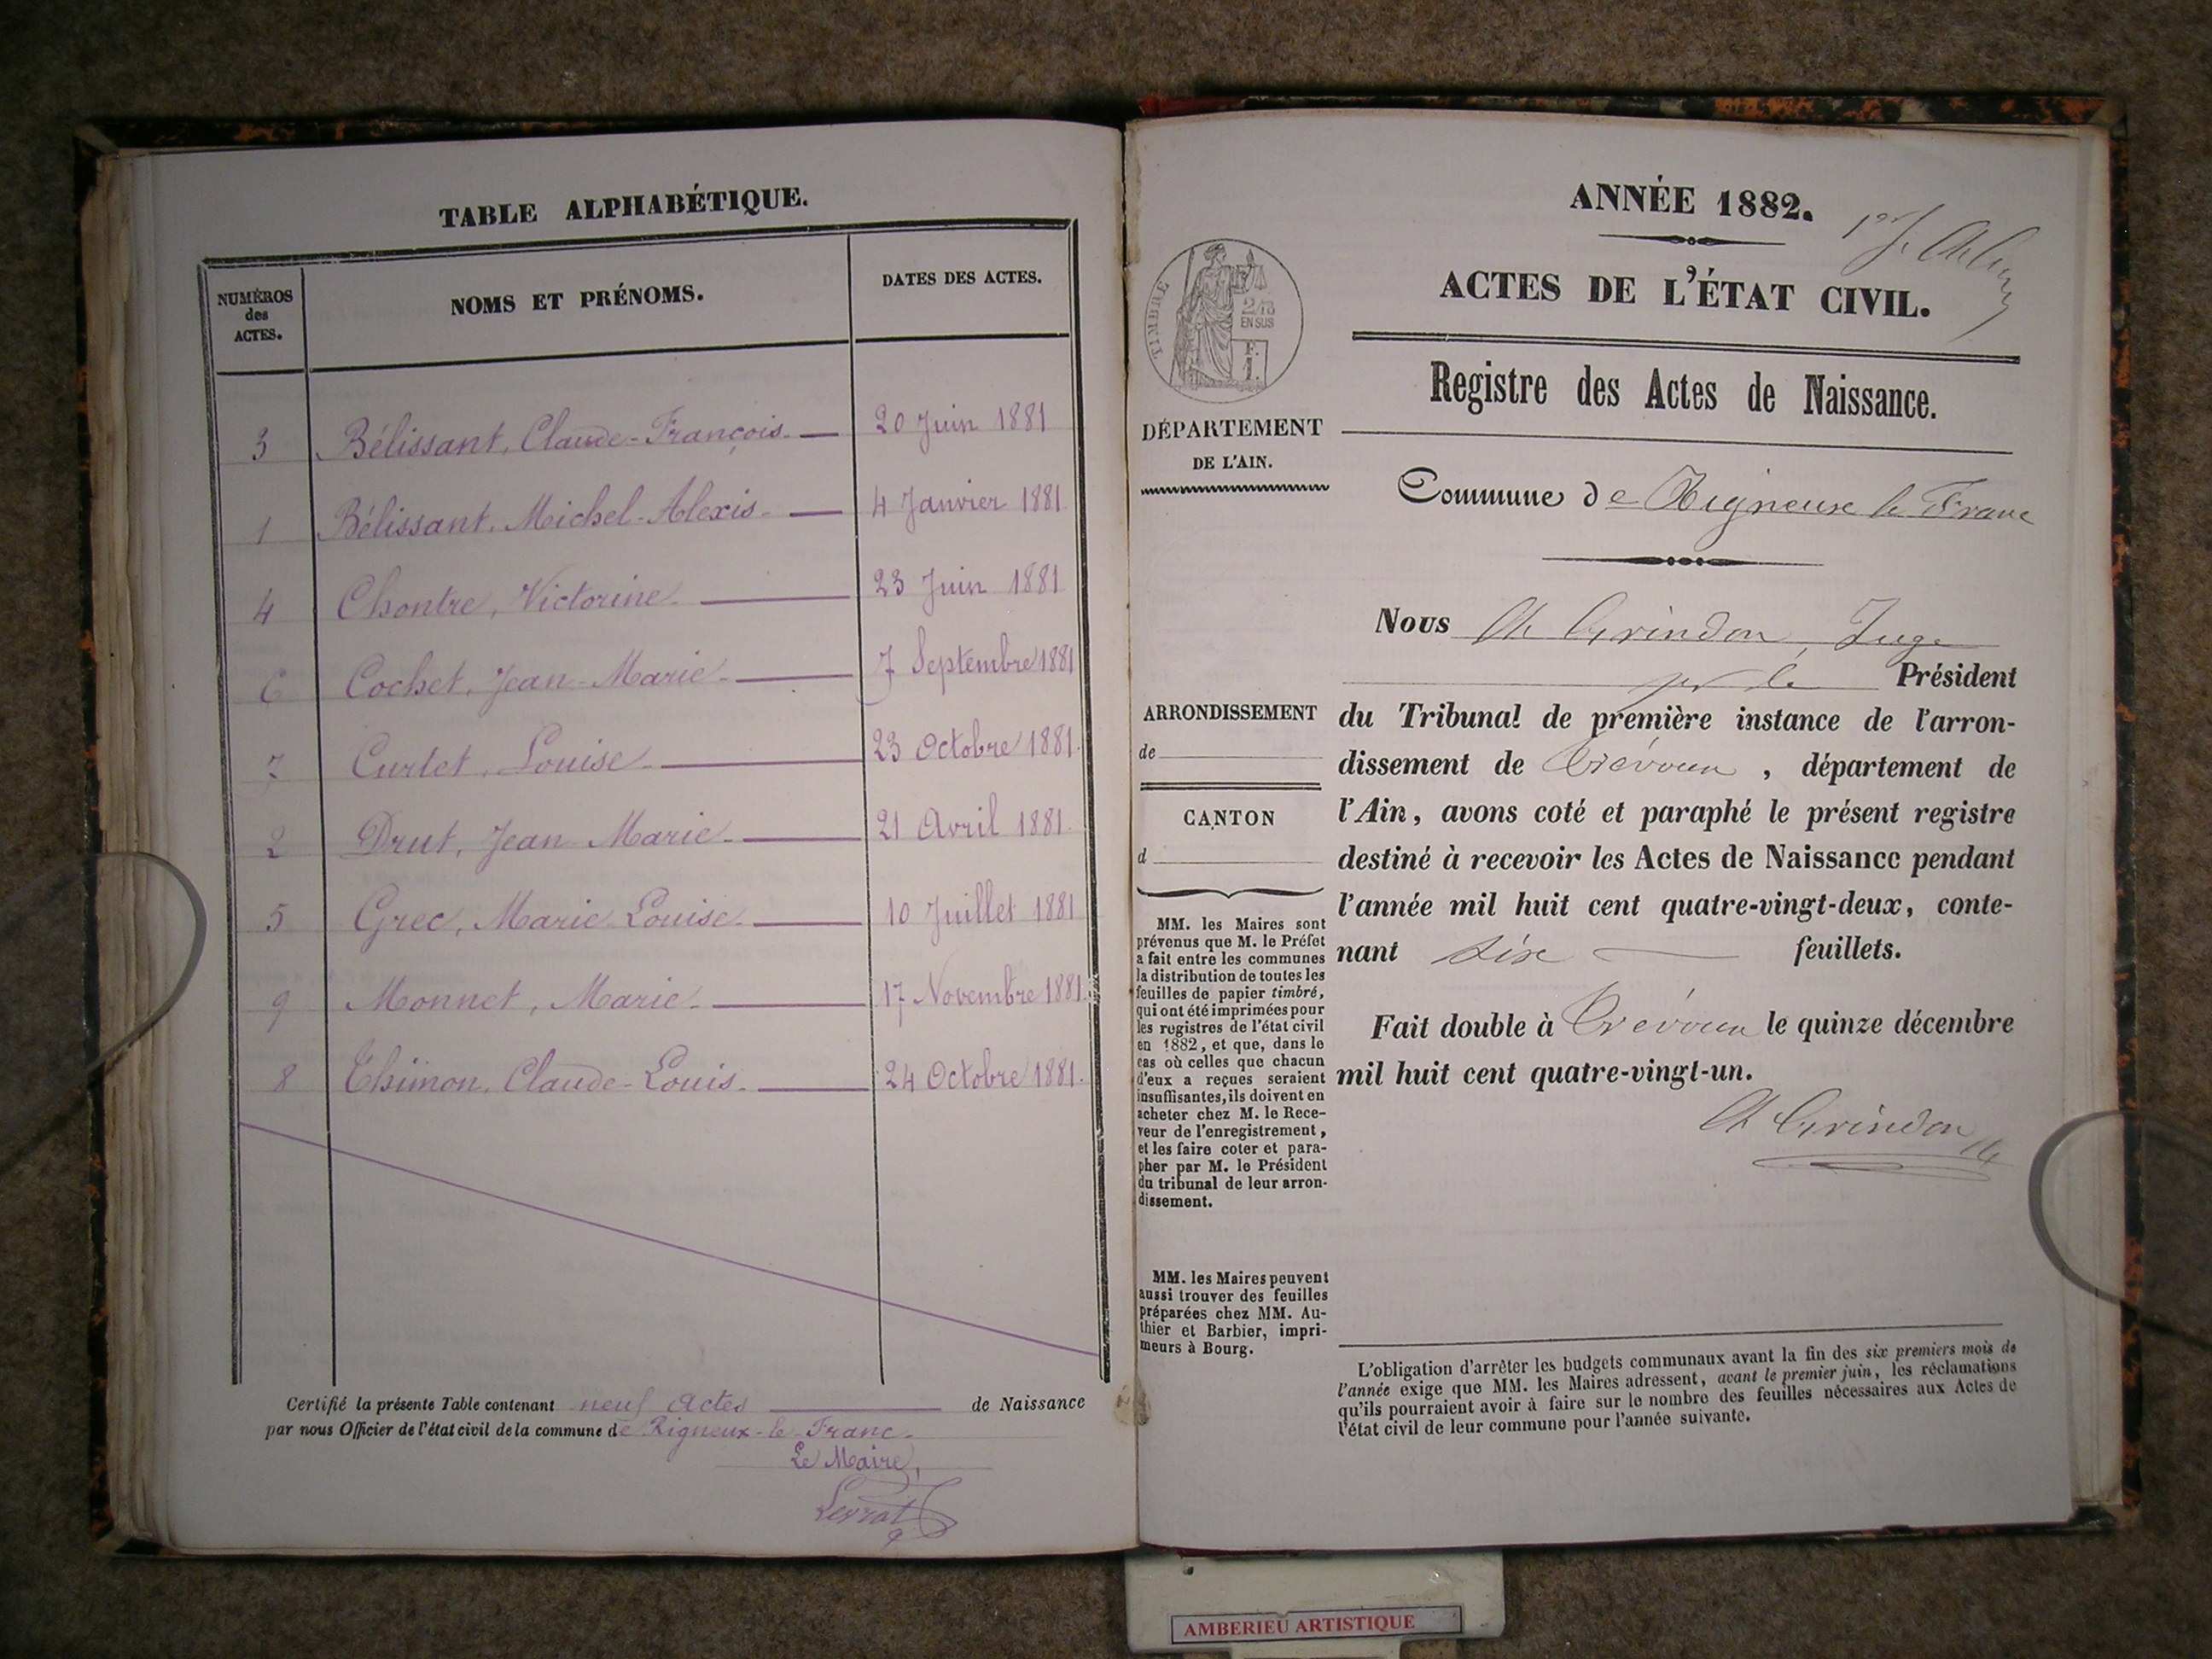 TABLE ALPHABÉTIQUE.
NUMÉROS des ACTES. NOMS ET PRÉNOMS. DATES DES ACTES.
3 Bélissant, Claude-François. 20 Juin 1881
1 Bélissant, Michel-Alexis. 4 Janvier 1881
4 Chontre, Victorine. 23 Juin 1881
6 Cochet, Jean-Marie. 7 Septembre 1881
7 Curtet, Louise. 23 Octobre 1881.
2 Drut, Jean Marie. 21 Avril 1881.
5 Grec, Marie Louise. 10 Juillet 1881
9 Monnet, Marie. 17 Novembre 1881.
8 Thimon, Claude-Louis. 24 Octobre 1881.
Certifié la présente Table contenant neuf actes de Naissance
par nous Officier de l'état civil de la commune de Rigneux-le-Franc.
Le Maire,
ANNÉE 1882.
ACTES DE L'ÉTAT CIVIL.
Registre des Actes de Naissance.
TIMBRE
2/10
EN SUS
F.
1.
DÉPARTEMENT
DE L'AIN.
Commune de Rigneux le Franc
Nous Ch Grindon, Juge
pr le Président
ARRONDISSEMENT
de
CANTON
d
du Tribunal de première instance de l'arron-
dissement de Trévoux, département de
l'Ain, avons coté et paraphé le présent registre
destiné à recevoir les Actes de Naissance pendant
l'année mil huit cent quatre-vingt-deux, conte-
nant six feuillets.
Fait double à Trévoux le quinze décembre
mil huit cent quatre-vingt-un.
Ch Grindon
MM. les Maires sont
prévenus que M. le Préfet
a fait entre les communes
la distribution de toutes les
feuilles de papier timbré,
qui ont été imprimées pour
les registres de l'état civil
en 1882, et que, dans le
cas où celles que chacun
d'eux a reçues seraient
insuffisantes, ils doivent en
acheter chez M. le Rece-
veur de l'enregistrement,
et les faire coter et para-
pher par M. le Président
du tribunal de leur arron-
dissement.
MM. les Maires peuvent
aussi trouver des feuilles
préparées chez MM. Au-
thier et Barbier, impri-
meurs à Bourg.
L'obligation d'arrêter les budgets communaux avant la fin des six premiers mois de
l'année exige que MM. les Maires adressent, avant le premier juin, les réclamations
qu'ils pourraient avoir à faire sur le nombre des feuilles nécessaires aux Actes de
l'état civil de leur commune pour l'année suivante.
AMBERIEU ARTISTIQUE